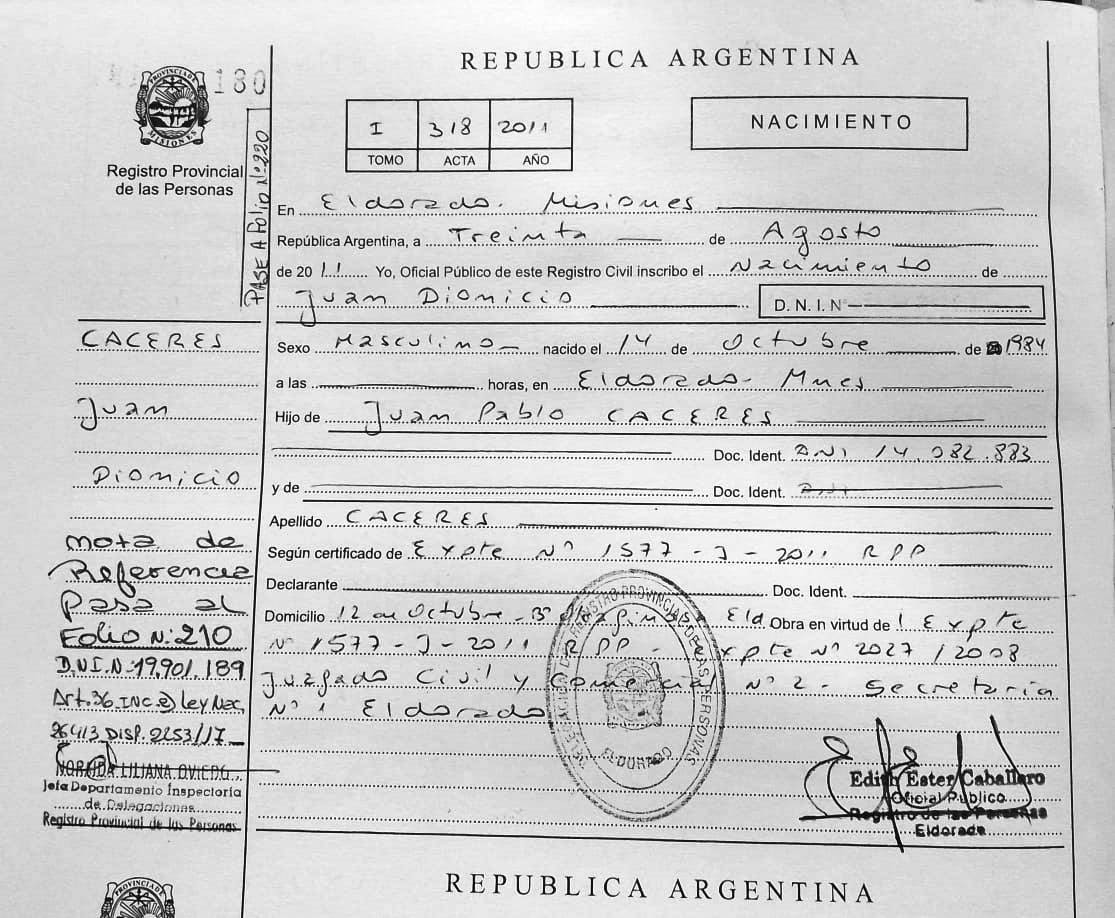 REPUBLICA ARGENTINA
180
PROVINCIA DE
MISIONES
Registro Provincial
de las Personas
PASE A Folio Nº 220
I 318 2011
TOMO ACTA AÑO
NACIMIENTO
En Eldorado. Misiones
República Argentina, a Treinta de Agosto
de 2011 Yo, Oficial Público de este Registro Civil inscribo el Nacimiento de
Juan Dionicio D. N. I. Nº
CACERES
Juan
Dionicio
Sexo Masculino nacido el 14 de Octubre de 1984
a las horas, en Eldorado - Mnes
Hijo de Juan Pablo CACERES
Doc. Ident. DNI 14.082.883
y de Doc. Ident. DNI
Apellido CACERES
Según certificado de Expte Nº 1577 - J - 2011 RPP
Declarante Doc. Ident.
Domicilio 12 de Octubre - Bº Eld Obra en virtud de Expte
Nº 1577 - J - 2011 RPP - Expte Nº 2027 / 2008
Juzgado Civil y Comercial Nº 2 - Secretaria
Nº 1 Eldorado
nota de
Referencia
Pasa al
Folio N: 210
D.N.I. N: 19.901.189
Art. 36 INC ley Nac.
26413 DISP. 2253/17
NORMA LILIANA OVIEDO
Jefa Departamento Inspectoria
de Delegaciones
Registro Provincial de las Personas
REGISTRO PROVINCIAL DE LAS PERSONAS
ELDORADO
Edith Ester Caballero
Oficial Publico
Registro de las Personas
Eldorado
PROVINCIA DE
REPUBLICA ARGENTINA